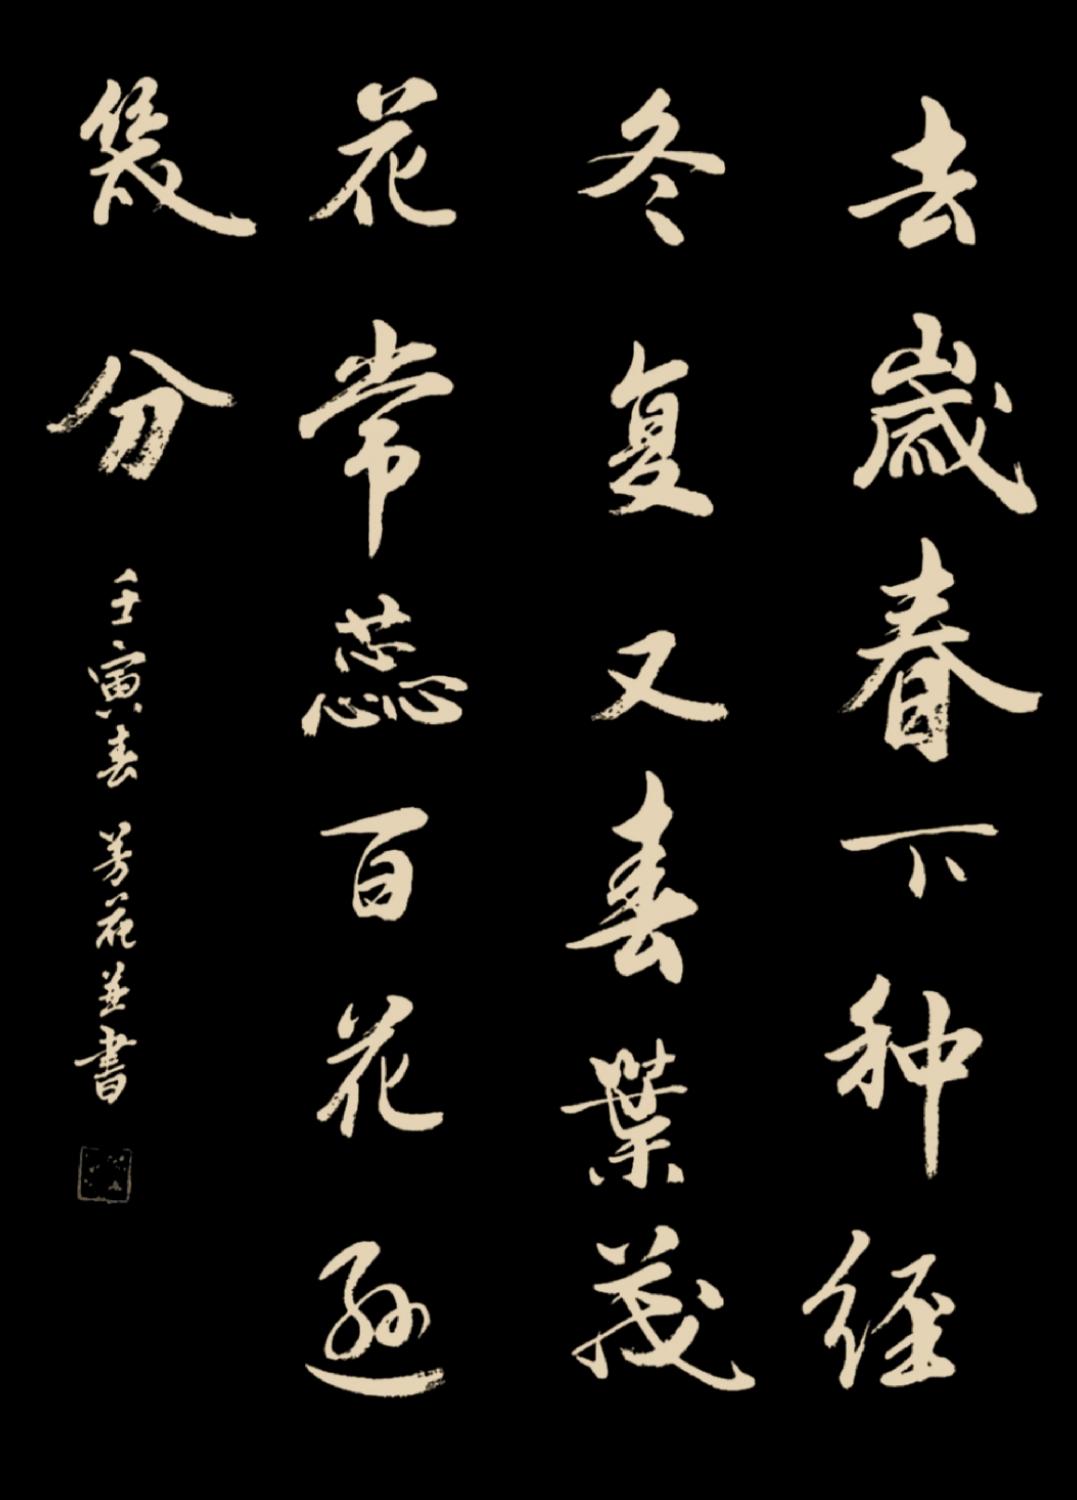 去歲春下种经
冬复又春葉茂
花常蕊百花遜
幾分
壬寅春 芳花並書